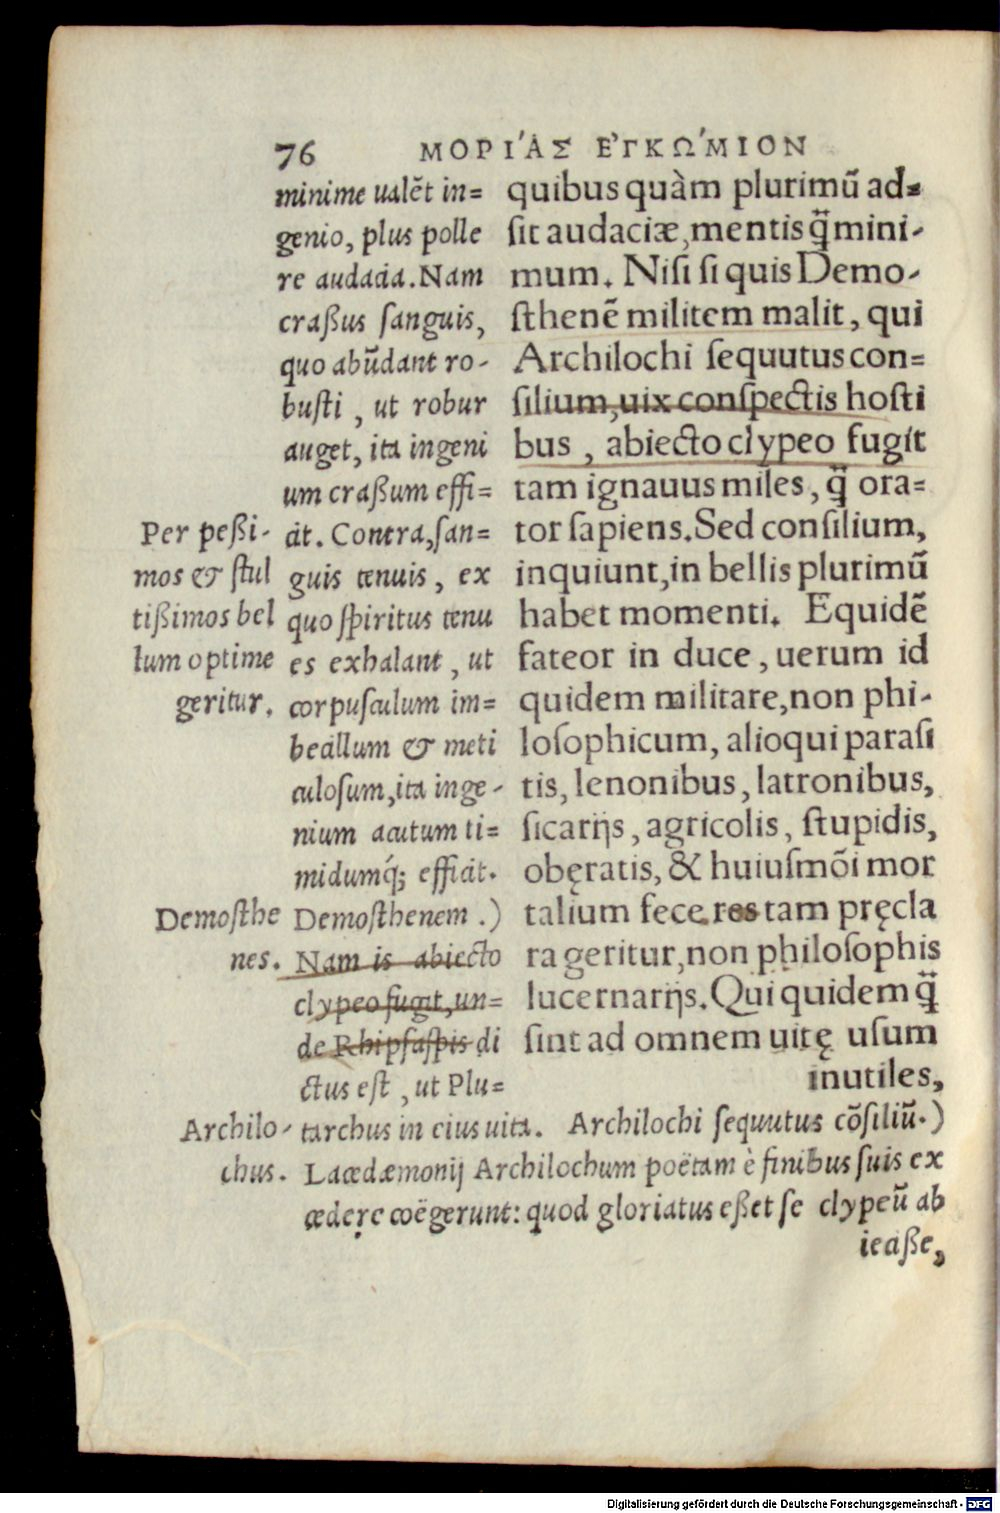 76
ΜΟΡΙ´ΑΣ ἘΓΚΩ´ΜΙΟΝ
quibus quàm plurimũ ad⸗
ſit audaciæ, mentis q̃ mini-
mum. Niſi ſi quis Demo-
ſthenẽ militem malit, qui
Archilochi ſequutus con=
ſilium, uix conſpectis hoſti
bus, abiecto clypeo fugit
tam ignauus miles, q̃ ora=
tor ſapiens. Sed conſilium,
inquiunt, in bellis plurimũ
habet momenti. Equidẽ
fateor in duce, uerum id
quidem militare, non phi-
loſophicum, alioqui paraſi
tis, lenonibus, latronibus,
ſicarijs, agricolis, ſtupidis,
obęratis, & huiuſmõi mor
talium fece res tam pręcla
ra geritur, non philoſophis
lucernarijs. Qui quidem q̃
ſint ad omnem uitę uſum
inutiles,
minime ualẽt in=
genio, plus polle
re audacia. Nam
craßus ſanguis,
quo abũdant ro-
buſti, ut robur
auget, ita ingeni
um craßum effi=
cit. Contra, ſan=
guis tenuis, ex
quo ſpiritus tenu
es exhalant, ut
corpuſculum im=
becillum & meti
culoſum, ita inge-
nium acutum ti=
midumq́; efficit.
Demoſthenem.)
Nam is abiecto
clypeo fugit, un=
de Rhipſaſpis di
ctus eſt, ut Plu=
tarchus in eius uita. Archilochi ſequutus cõſiliũ.)
Lacedæmonij Archilochum poëtam è finibus ſuis ex
cedere coëgerunt: quod gloriatus eßet ſe clypeũ ab
ieciße,
Per peßi-
mos & ſtul
tißimos bel
lum optime
geritur.
Demoſthe
nes.
Archilo-
chus.
Digitalisierung gefördert durch die Deutsche Forschungsgemeinschaft - DFG